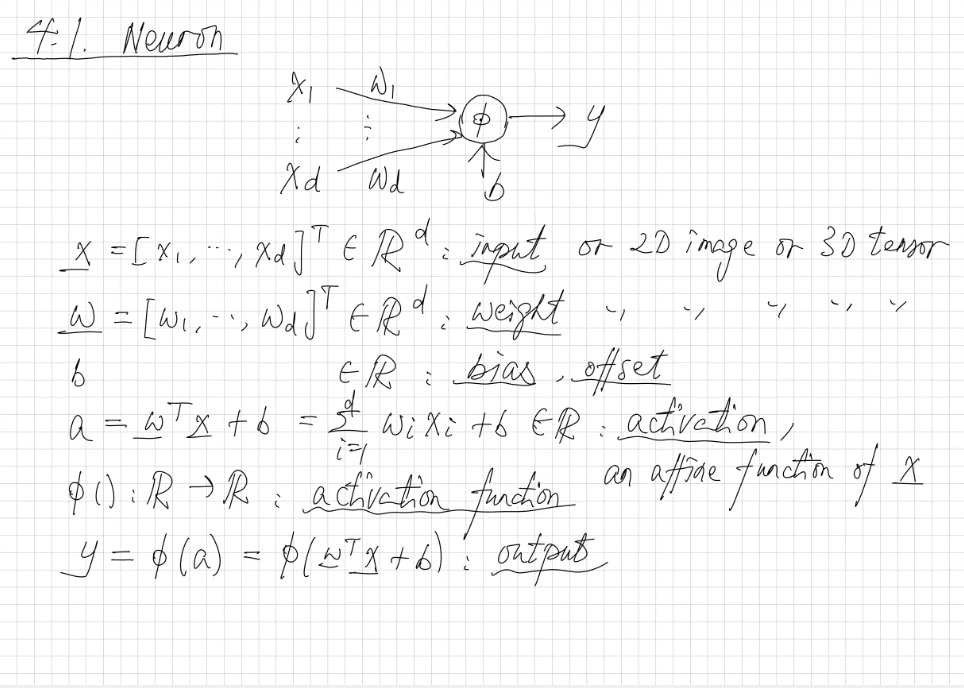 4.1. Neuron
x₁ w₁
⋮ ⋮ ϕ → y
x_d w_d b
x = [x₁, ⋯, x_d]ᵀ ∈ ℝᵈ : input or 2D image or 3D tensor
w = [w₁, ⋯, w_d]ᵀ ∈ ℝᵈ : weight 〃 〃 〃 〃 〃
b ∈ ℝ : bias, offset
a = wᵀx + b = Σ_{i=1}^{d} wᵢxᵢ + b ∈ ℝ : activation,
an affine function of x
ϕ() : ℝ → ℝ : activation function
y = ϕ(a) = ϕ(wᵀx + b) : output